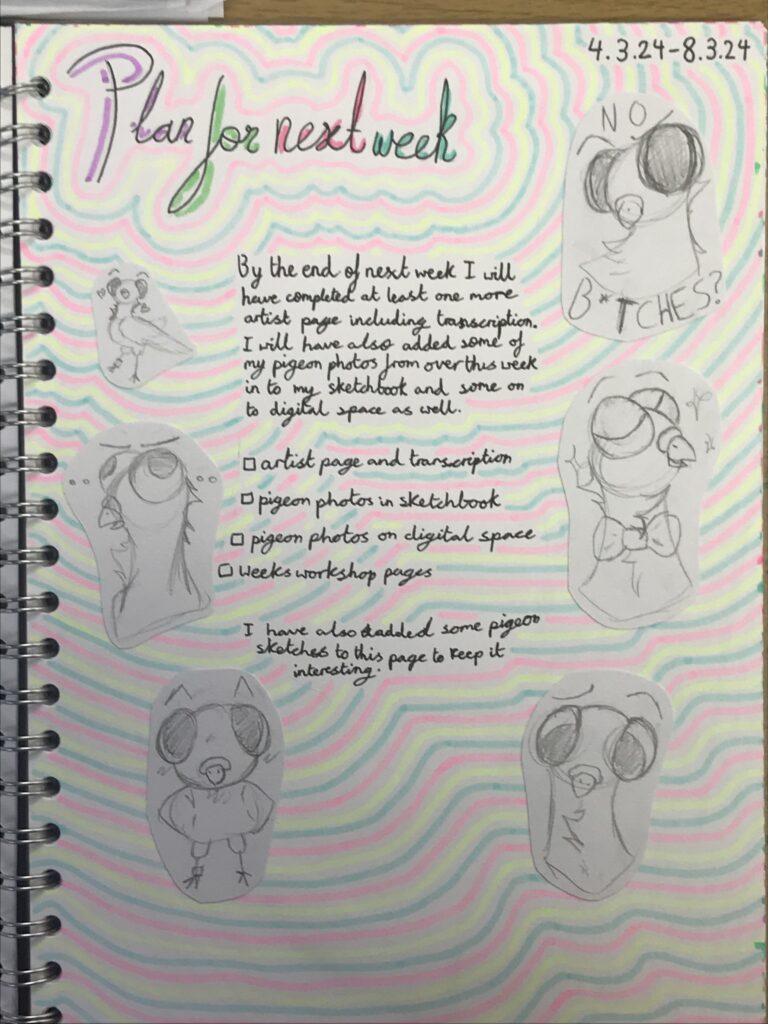 4.3.24-8.3.24
Plan for next week
NO
B*TCHES?
By the end of next week I will
have completed at least one more
artist page including transcription.
I will have also added some of
my pigeon photos from over this week
in to my sketchbook and some on
to digital space as well.
artist page and transcription
pigeon photos in sketchbook
pigeon photos on digital space
weeks workshop pages
I have also added some pigeon
sketches to this page to keep it
interesting.